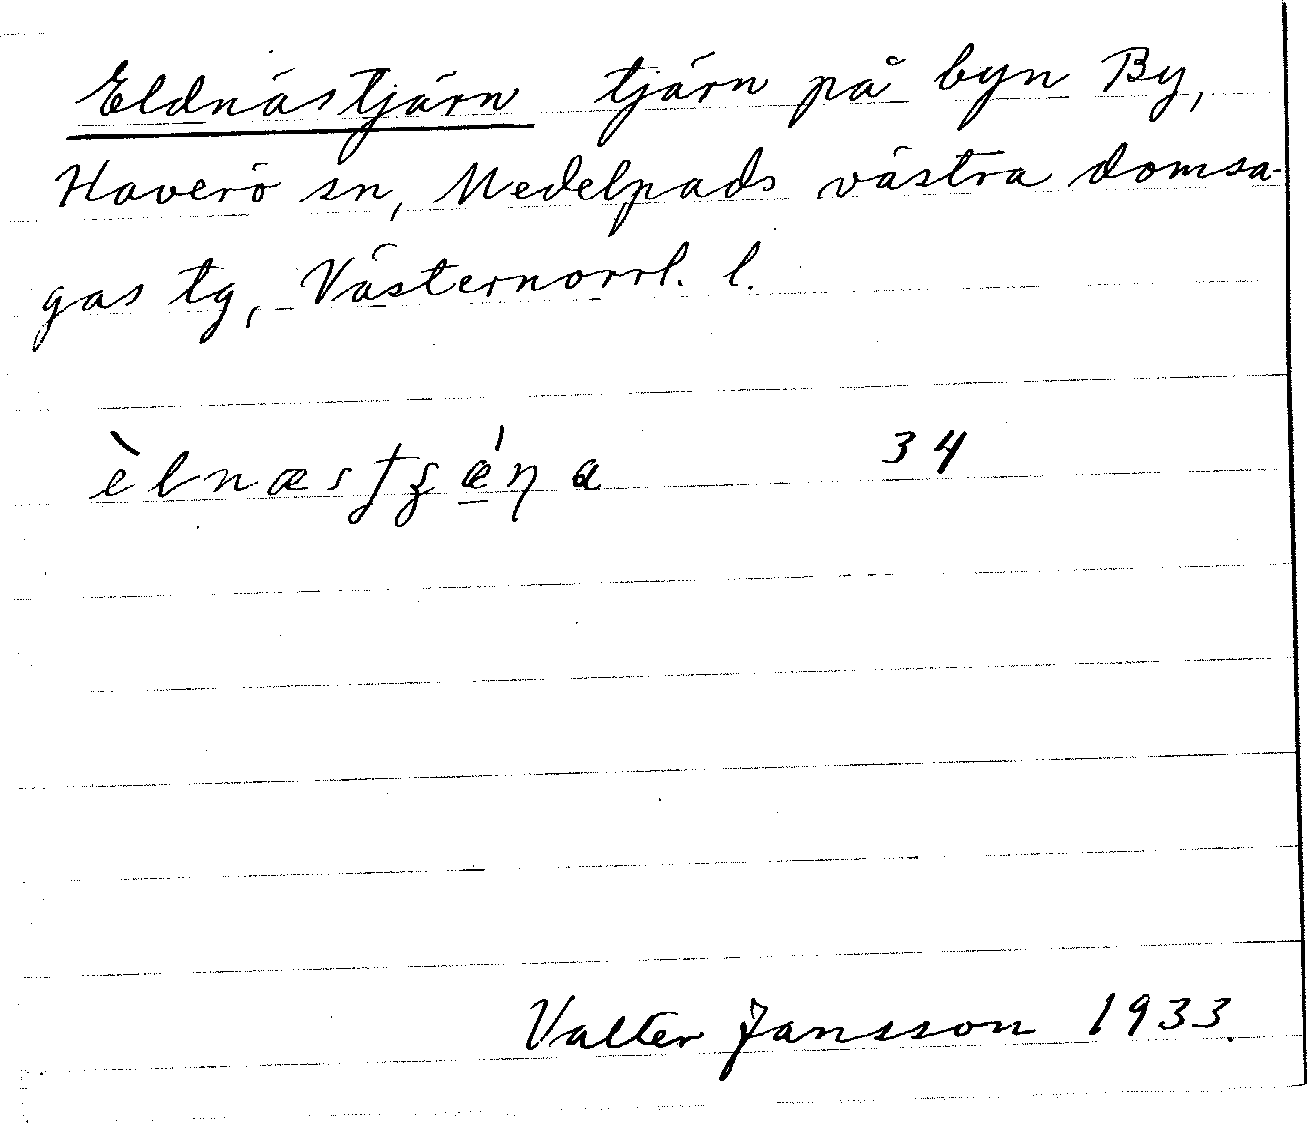 Eldnästjärn tjärn på byn By,
Haverö sn, Medelpads västra domsa-
gas tg, Västernorrl. l.
34
Valter Jansson 1933.